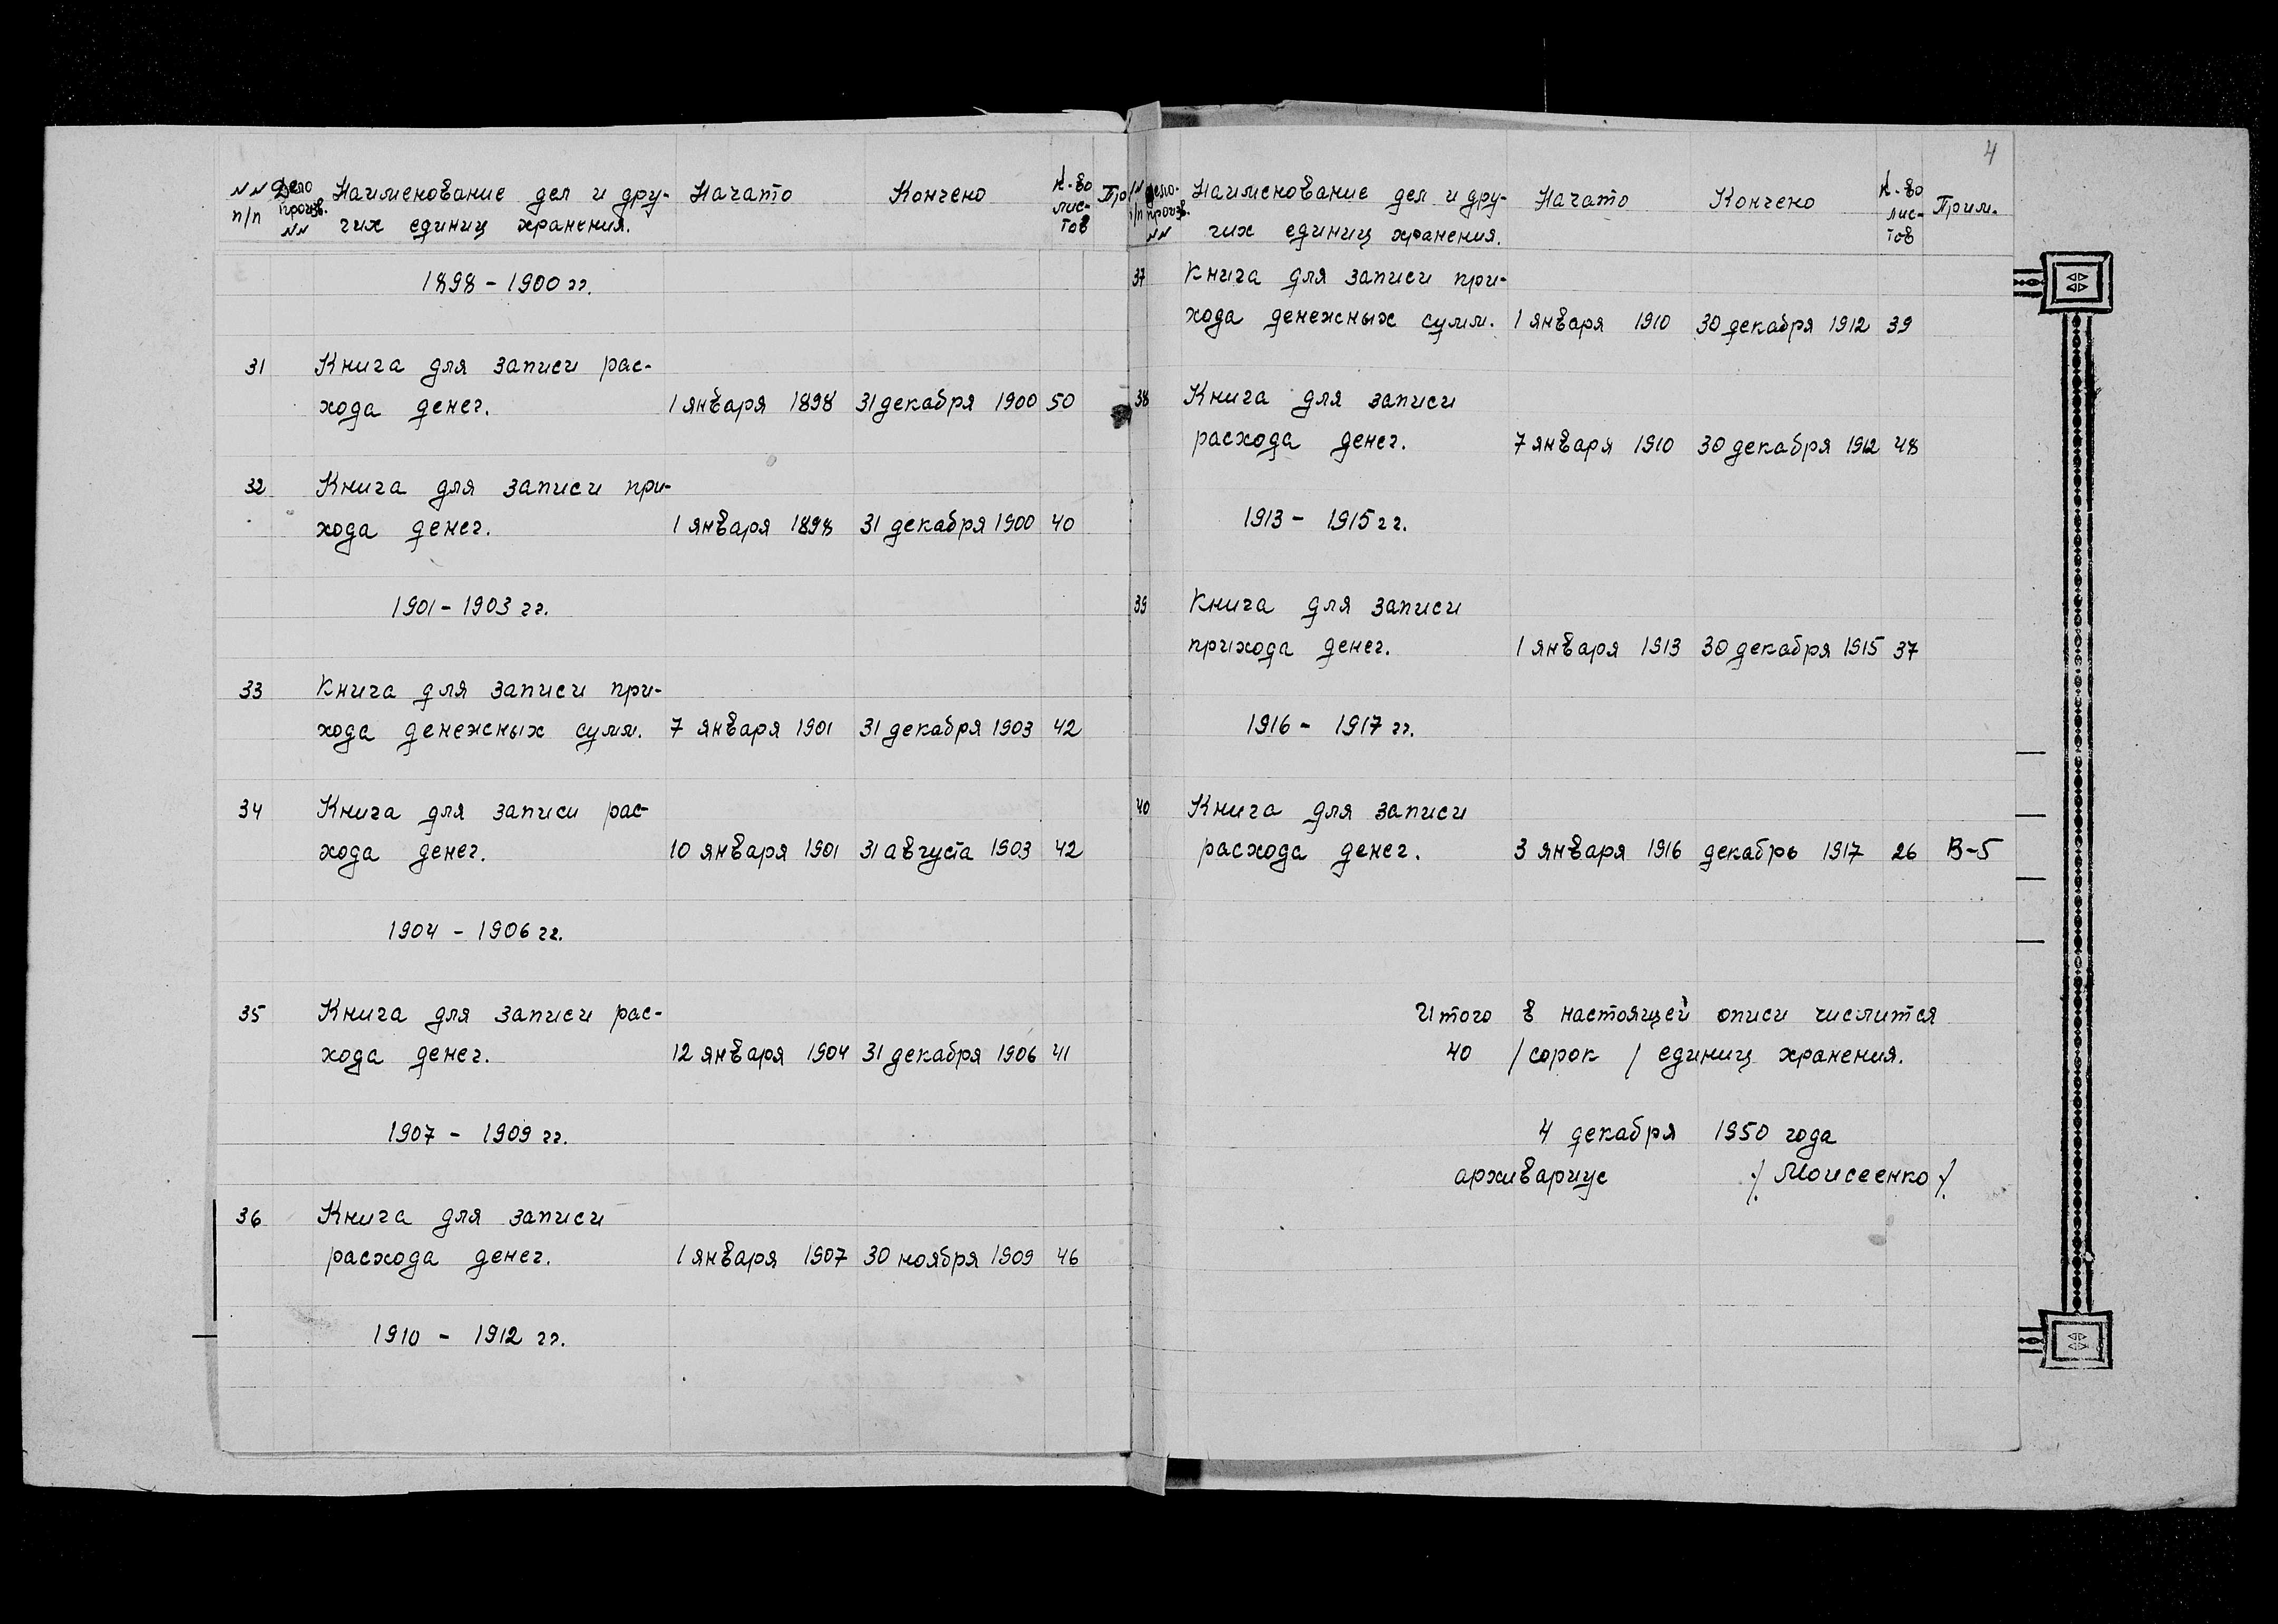 NN Дело Наименование дел и дру- Начато Кончено К-во Пр
п/п произв. гих единиц хранения. лис-
NN тов
1898 - 1900 гг.
31 Книга для записи рас-
хода денег. 1 января 1898 31 декабря 1900 50
32 Книга для записи при-
хода денег. 1 января 1898 31 декабря 1900 40
1901 - 1903 гг.
33 Книга для записи при-
хода денежных сумм. 7 января 1901 31 декабря 1903 42
34 Книга для записи рас-
хода денег. 10 января 1901 31 августа 1903 42
1904 - 1906 гг.
35 Книга для записи рас-
хода денег. 12 января 1904 31 декабря 1906 41
1907 - 1909 гг.
36 Книга для записи
расхода денег. 1 января 1907 30 ноября 1909 46
1910 - 1912 гг.
4
Дело- Наименование дел и дру- Начато Кончено К-во Прим.
п/п произв. гих единиц хранения. лис-
NN тов
37 Книга для записи при-
хода денежных сумм. 1 января 1910 30 декабря 1912 39
38 Книга для записи
расхода денег. 7 января 1910 30 декабря 1912 48
1913 - 1915 гг.
39 Книга для записи
прихода денег. 1 января 1913 30 декабря 1915 37
1916 - 1917 гг.
40 Книга для записи
расхода денег. 3 января 1916 декабрь 1917 26 В-5
Итого в настоящей описи числится
40 /сорок/ единиц хранения.
4 декабря 1950 года
архивариус /Моисеенко/